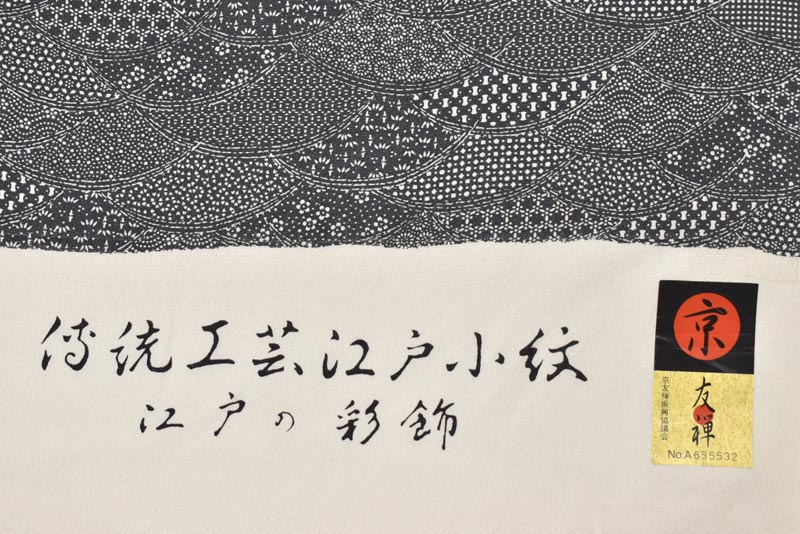 傳統工芸江戸小紋
江戸の彩飾
京
友禅
京友禅振興協議会
No.A655532